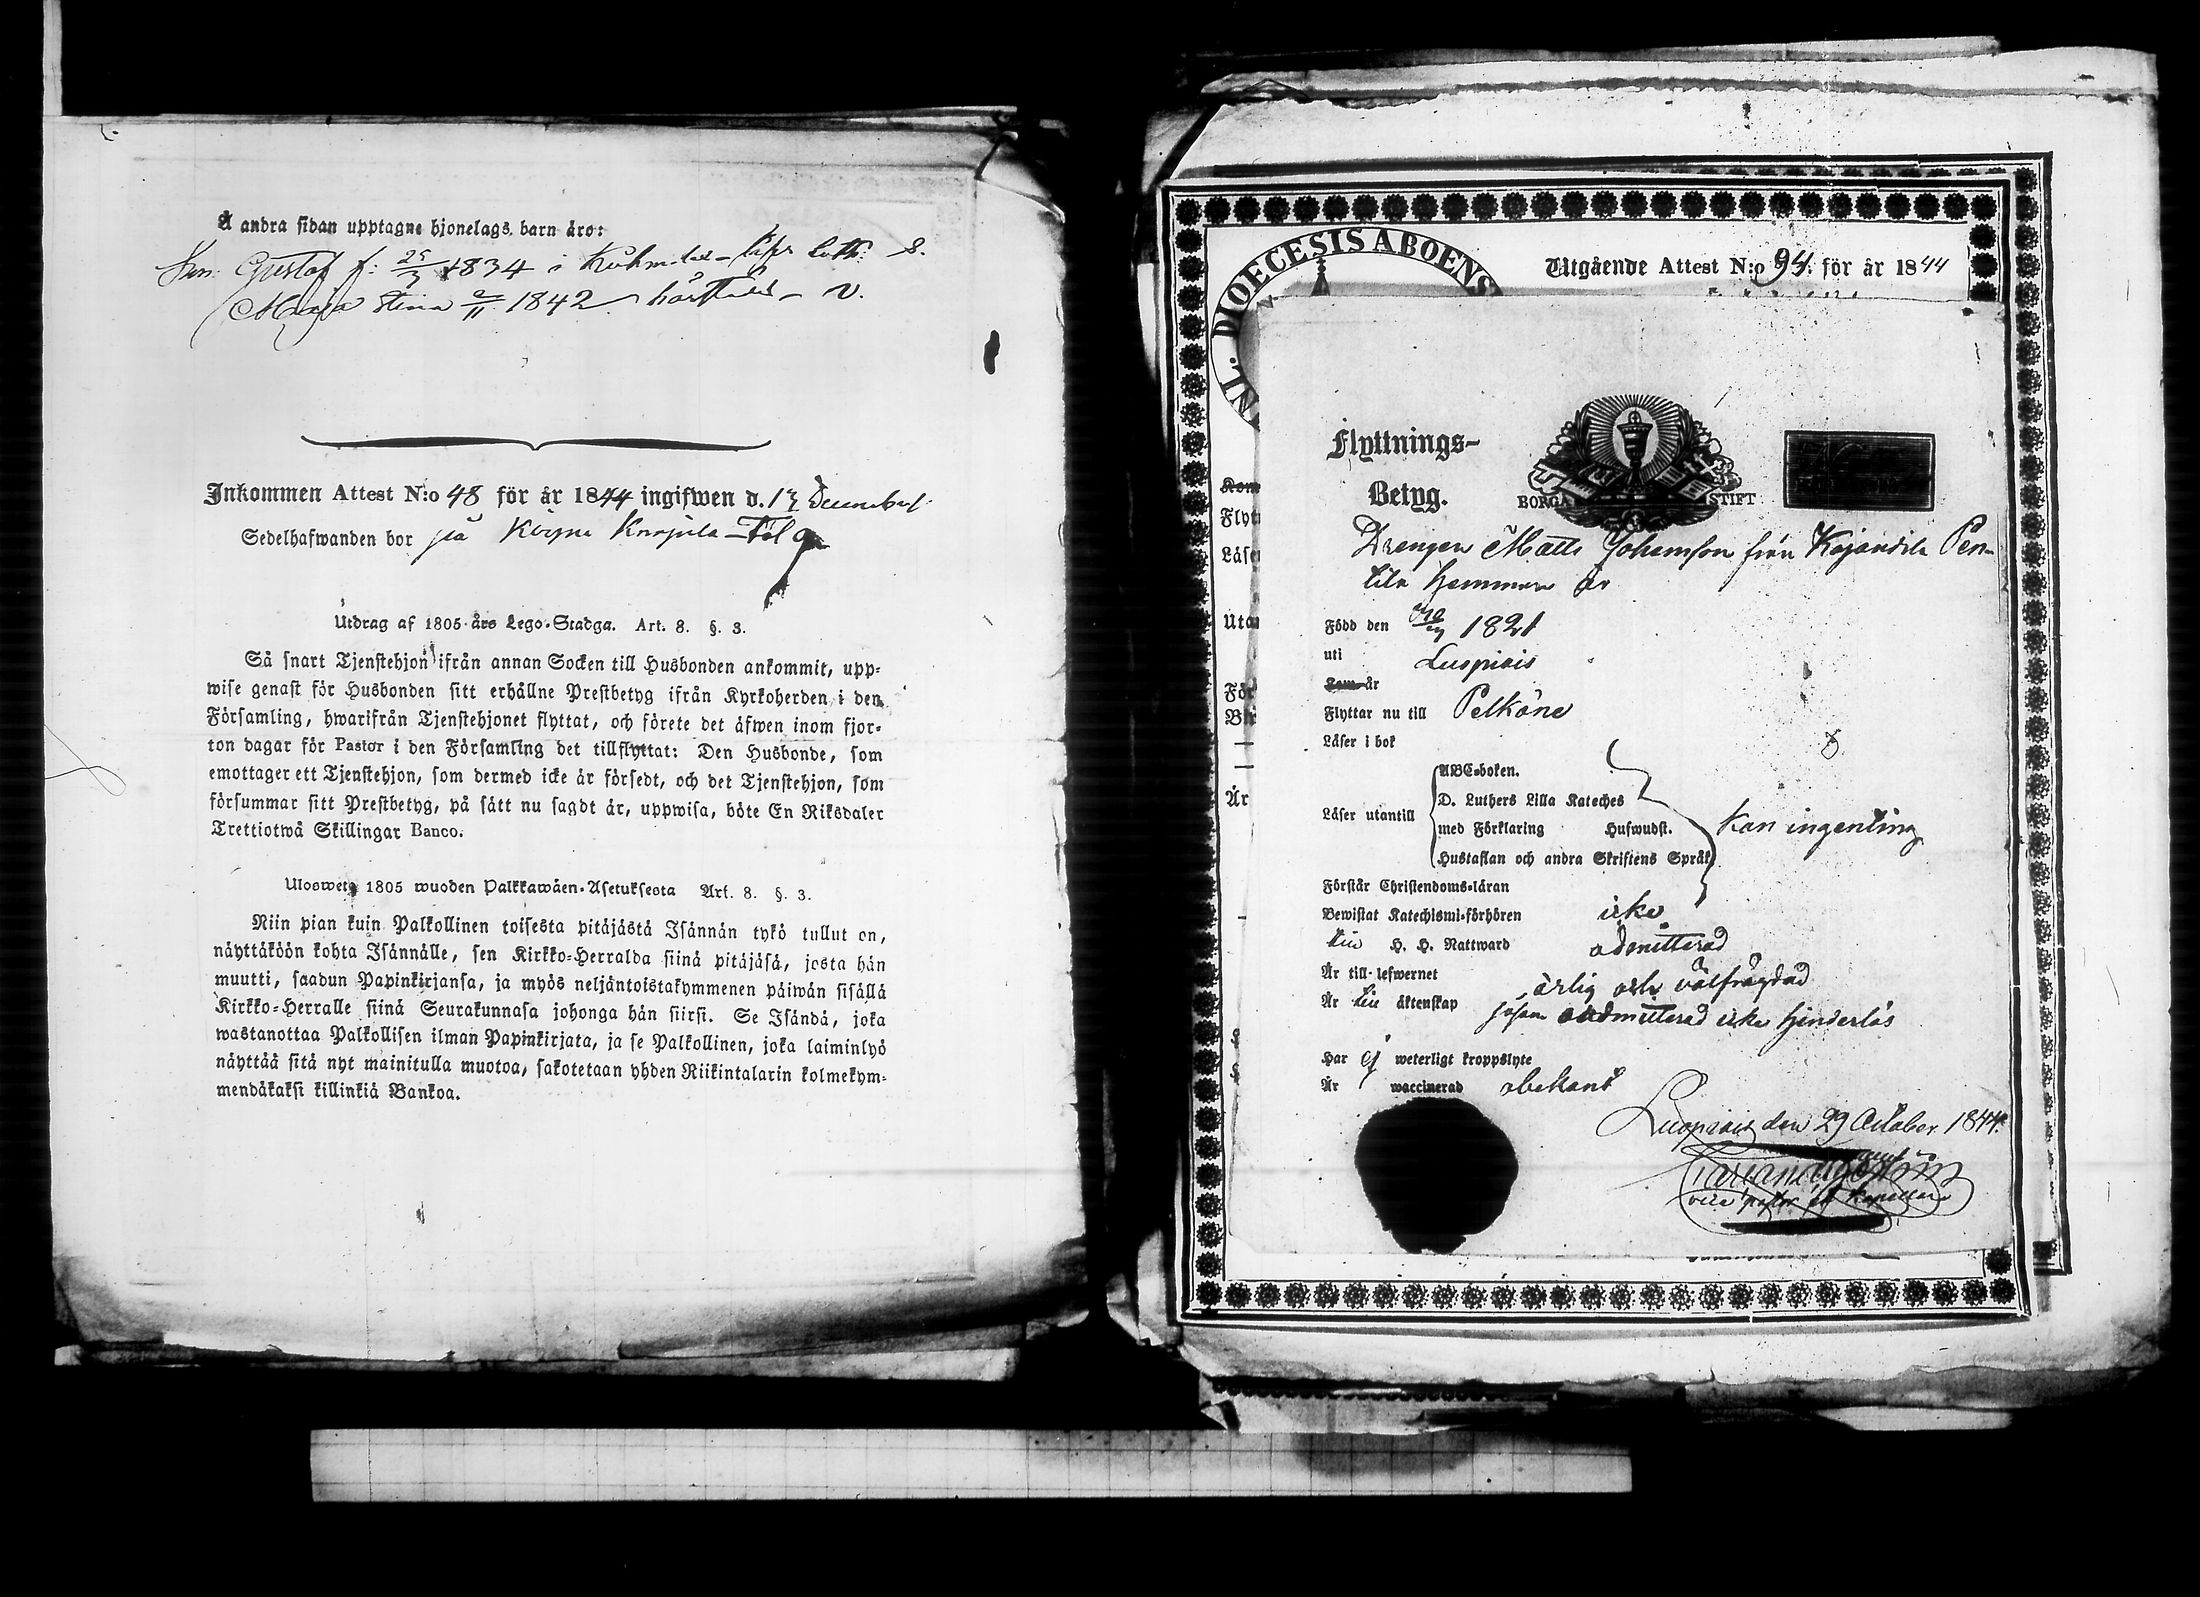 Å andra sidan upptagne hjonelags barn äro:
Son Gustaf f: 25/3 1834 i
Maja Stina 1842
Inkommen Attest N:o 48 för år 1844 ingifwen d. December
Sedelhafwanden bor på
Utdrag af 1805 års Lego-Stadga. Art. 8. §. 3.
Så snart Tjenstehjon ifrån annan Socken till Husbonden ankommit, upp-
wise genast för Husbonden sitt erhållne Prestbetyg ifrån Kyrkoherden i den
Församling, hwarifrån Tjenstehjonet flyttat, och förete det äfwen inom fjor-
ton dagar för Pastor i den Församling det tillflyttat: Den Husbonde, som
emottager ett Tjenstehjon, som dermed icke är försedt, och det Tjenstehjon, som
försummar sitt Prestbetyg, på sätt nu sagdt är, uppwisa, böte En Riksdaler
Trettiotwå Skillingar Banco.
Ulosweto 1805 wuoden Palkkawäen-Asetuksesta Art. 8. §. 3.
Niin pian kuin Palkollinen toisesta pitäjästä Isännän tykö tullut on,
näyttäköön kohta Isännälle, sen Kirkko-Herralda siinä pitäjäsä, josta hän
muutti, saadun Papinkirjansa, ja myös neljäntoistakymmenen päiwän sisällä
Kirkko-Herralle siinä Seurakunnasa johonga hän siirsi. Se Isändä, joka
wastanottaa Palkollisen ilman Papinkirjata, ja se Palkollinen, joka laiminlyö
näyttää sitä nyt mainitulla muotoa, sakotetaan yhden Riikintalarin kolmekym-
mendäkaksi killinkiä Bankoa.
DIOECESIS ABOENS
Utgående Attest N:o 94. för år 1844
Flyttnings-
Betyg.
BORGÅ STIFT
Drengen Matts Johansson från Kajandila Pen-
tila hemman är
Född den 1821
uti Luopiois
Som är
Flyttar nu till Pelkäne
Läser i bok
Läser utantill
ABC-boken.
D. Luthers Lilla Kateches
med Förklaring Hufwudst.
Hustaflan och andra Skriftens Språk
kan ingenting
Förstår Christendoms-läran
Bewistat Katechismi-förhören icke
till H. H. Nattward admitterad
Är till lefwernet ärlig och välfrägdad
Är till äktenskap såsom oadmitterad icke hinderlös
Har ej weterligt kroppslyte
Är waccinerad obekant
Luopiois den 29 October 1844.
vice pastor